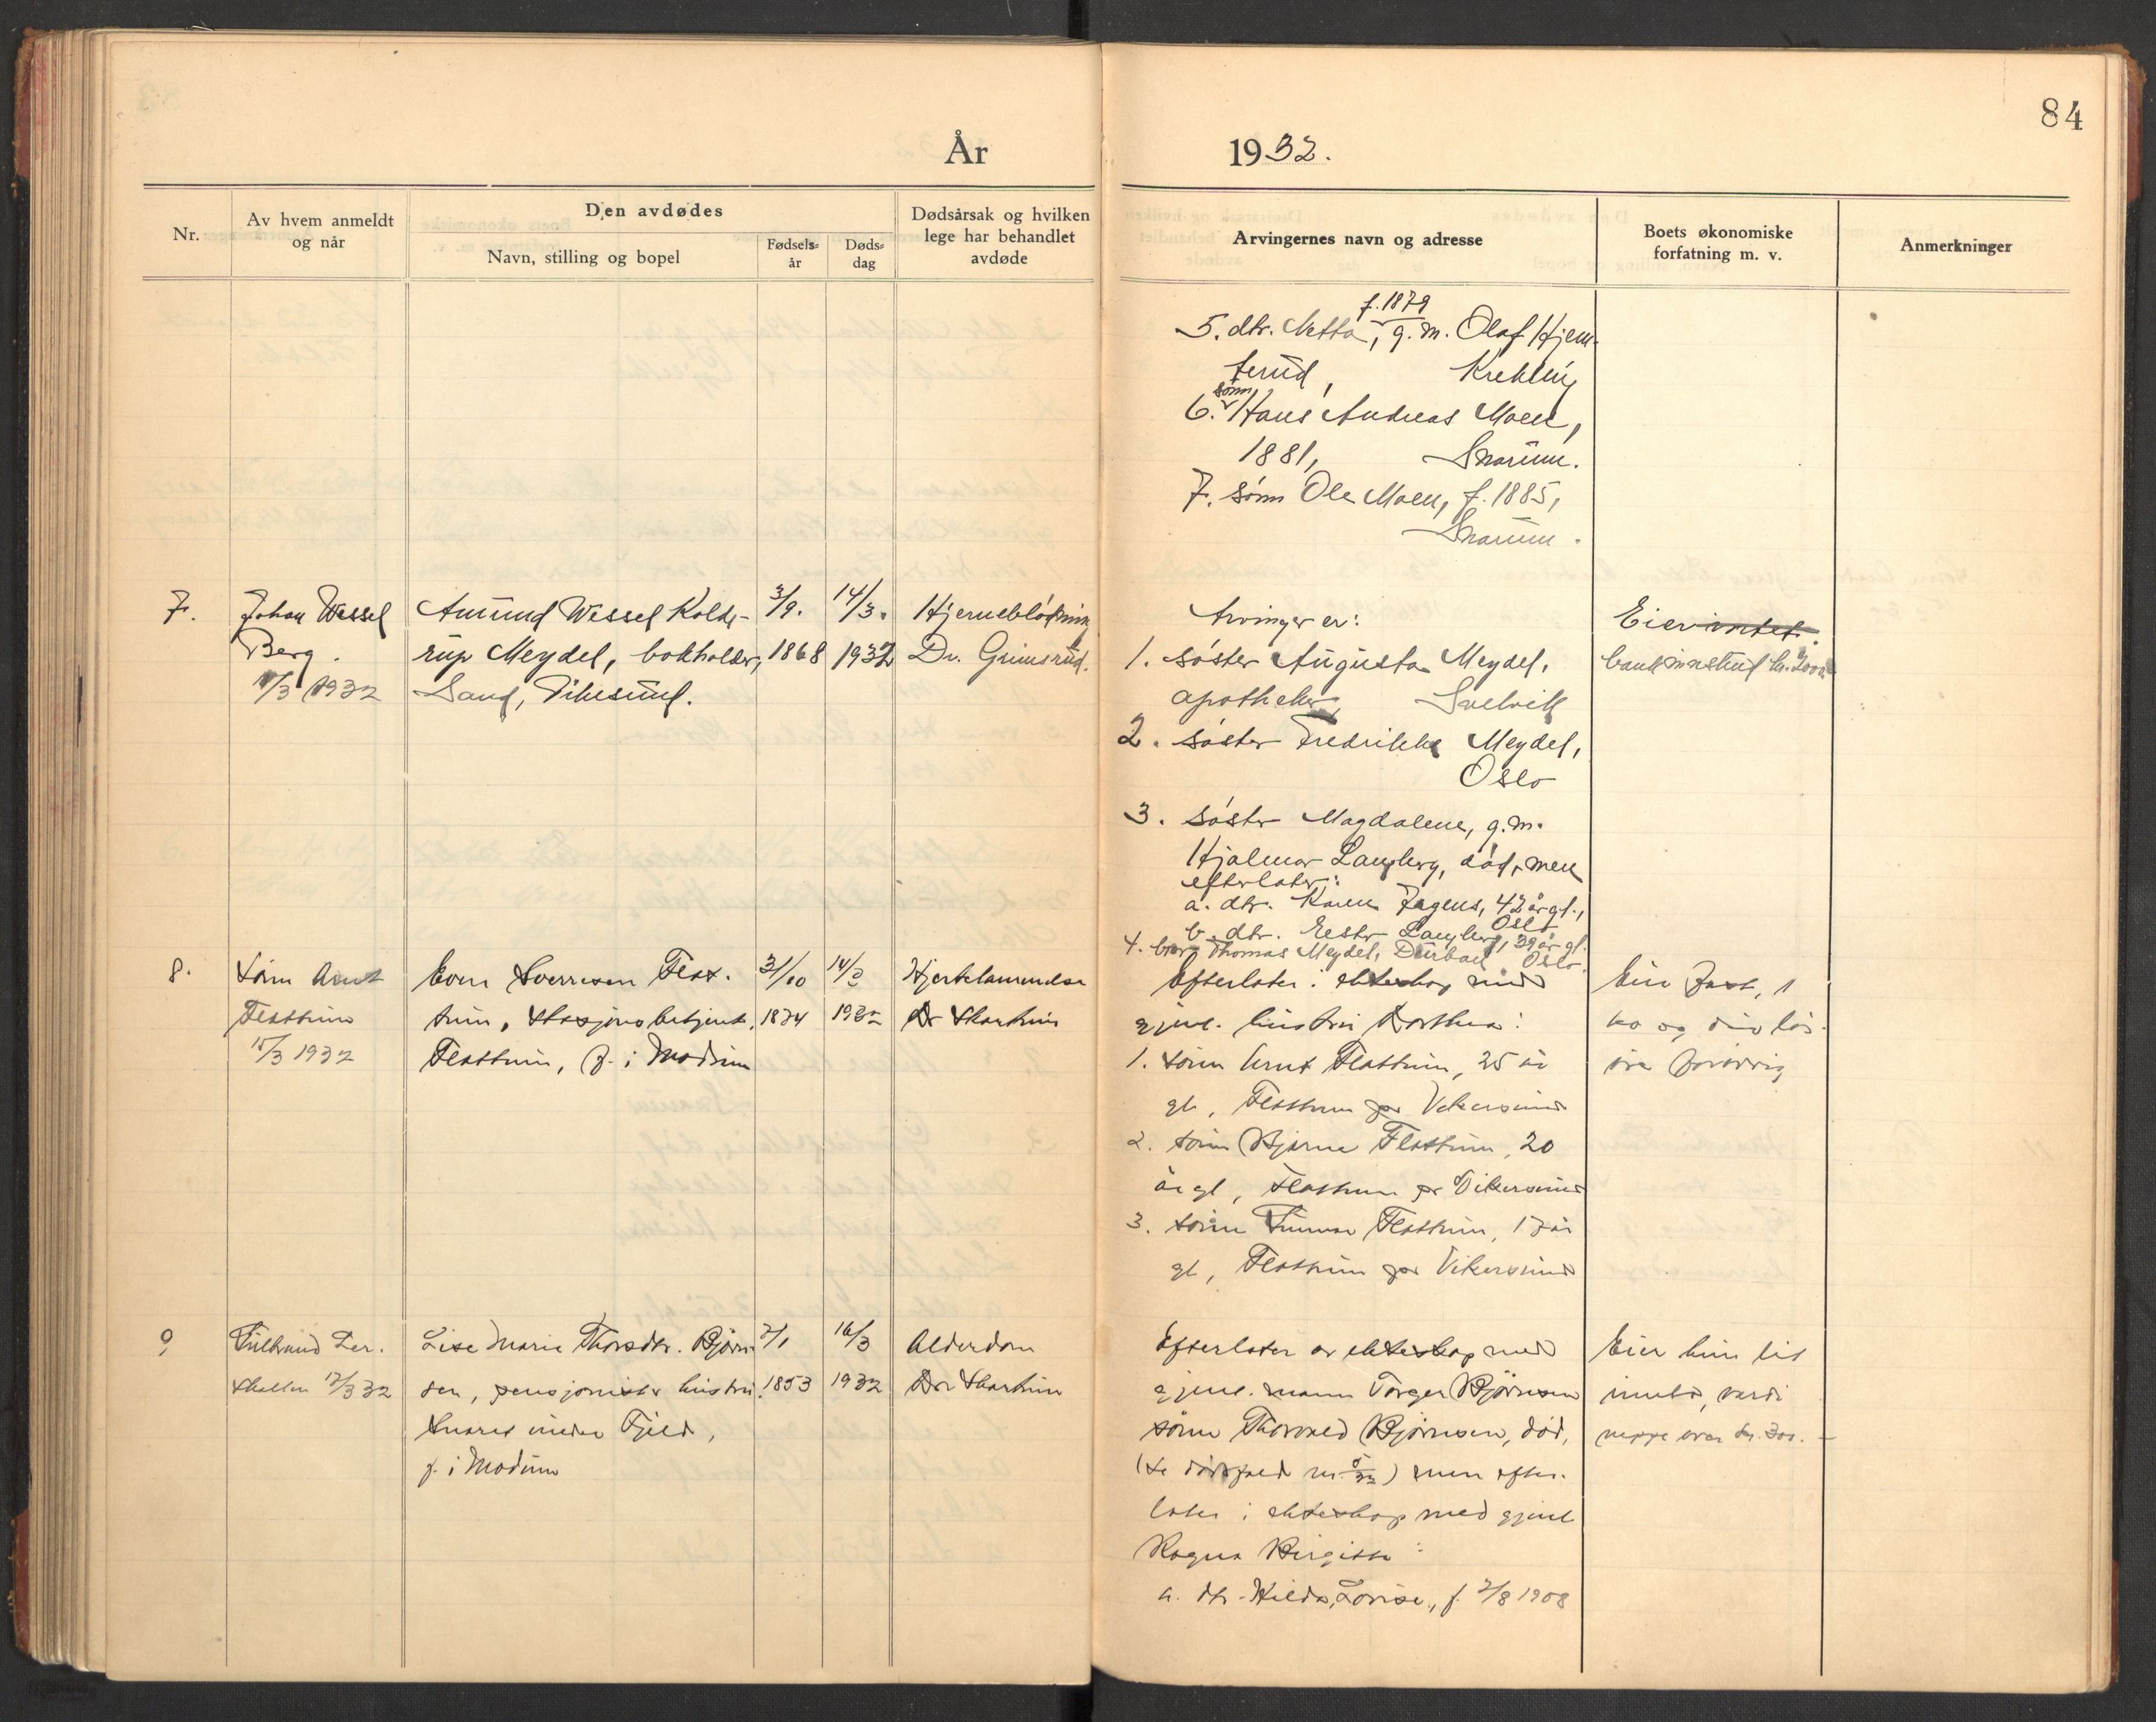 84
År 1932.
Nr.
Av hvem anmeldt
og når
Den avdødes
Navn, stilling og bopel
Fødsels-
år
Døds-
dag
Dødsårsak og hvilken
lege har behandlet
avdøde
Arvingernes navn og adresse
Boets økonomiske
forfatning m. v.
Anmerkninger
f. 1879
5. dtr. Netta, g. m. Olaf Hjem-
terud, Krekling
sønn
6. Hans Andreas Moen,
1881, Snarum.
7. sønn Ole Moen, f. 1885,
Snarum.
7.
Johan Wessel
Berg.
/3 1932
Amund Wessel Kolde-
rup Meydel, bokholder,
Sand, Vikesund.
3/9.
1868
14/3.
1932
Hjerneblødning
Dr. Grimsrud.
Arvinger er:
1. søster Augusta Meydel,
apotheker, Svelvik
2. søster Fredrikke Meydel,
Oslo
3. søster Magdalene, g. m.
Hjalmar Langberg, død, men
efterlater:
a. dtr. Karen Fagens, 42 år gl.,
Oslo
b. dtr. Ester Langberg, 39 år gl.
Oslo.
4. bror Thomas Meydel, Durban
Eier intet.
bankinnskud kr. 2000
8.
Sønn Arnt
Flattum
15/3 1932
Even Sverresen Flat-
tum, stasjonsbetjent,
Flattum, f. i Modum
31/10
1874
14/3
1932
Hjertelammelse
Dr Skartum
Efterlater i ekteskap med
gjenl. hustru Dorthea:
1. sønn Arnt Flattum, 25 år
gl, Flattum pr Vikersund
2. sønn Bjarne Flattum, 20
år gl, Flattum pr Vikersund
3. sønn Gunnar Flattum, 17 år
gl, Flattum pr Vikersund
Eier fast, 1
ko og div løs-
øre forøvrig
9
Gulbrand Ler-
skallen 17/3 32
Lise Marie Thorsdtr. Bjørn-
sen, pensjonists hustru
Snaret under Fjeld,
f. i Modum
7/1
1853
16/3
1932
Alderdom
Dr Skartum
Efterlater av ekteskap med
gjenl. mann Torger Bjørnsen
sønn Thorvald Bjørnsen, død,
(se dødsfald nr. 5/32) men efter-
later i ekteskap med gjenl
Ragna Birgitte:
a. dtr. Hilda Lovise, f. 7/8 1908
Eier kun litt
innbo, verdi
neppe over kr. 300.-